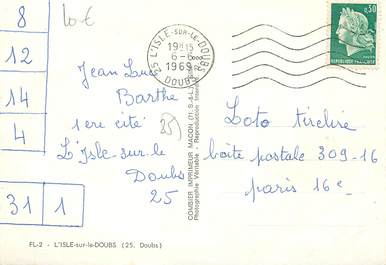 8
10€
12
14
4
31 1
Jean Luc
Barthe
1ere cité
L'Isle-sur-le
Doubs
25
(25)
25 L'ISLE-SUR-LE-DOUBS
19H15
6-6
1969
DOUBS
0,30
REPUBLIQUE FRANÇAISE
COMBIER IMPRIMEUR MACON (71, S.-&-L.)
Photographie Véritable - Reproduction Interdite
Loto tirelire
boîte postale 309-16
paris 16e
FL-2 - L'ISLE-sur-le-DOUBS (25. Doubs)